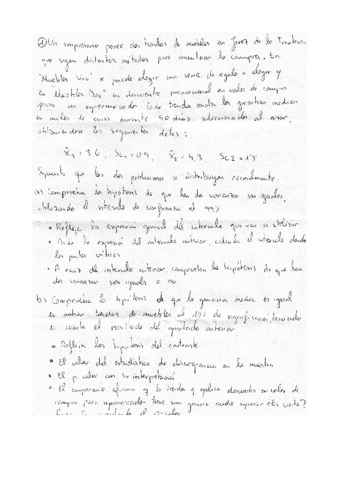 ① Un empresario posee dos tiendas de muebles en Jerez de la Frontera
que siguen distintos métodos para incentivar la compra. En
"Muebles Uno" se puede elegir una serie de regalo a elegir y
en "Muebles Dos" un descuento promocional en vales de compra
para un supermercado. Cada tienda anota las ganancias medias
en miles de euros durante 50 días seleccionados al azar,
obteniendo los siguientes datos:
x̄₁ = 3,6 Sc₁ = 0,9 x̄₂ = 4,3 Sc2 =
Supuesto que las dos poblaciones se distribuyen normalmente.
a) Comprueba la hipótesis de que las dos varianzas son iguales,
utilizando el intervalo de confianza al
• Refleja la expresión general del intervalo que vas a utilizar
• Dada la expresión del intervalo anterior, calcula el intervalo dando
los puntos críticos
• A raíz del intervalo anterior, comprueba la hipótesis de que las
dos varianzas son iguales o no
b) Comprueba la hipótesis de que la ganancia media es igual
en ambas tiendas de muebles al 10% de significación, teniendo
en cuenta el resultado del apartado anterior
• Refleja las hipótesis del contraste
• El valor del estadístico de discrepancia en la muestra
• El p valor con su interpretación
• El empresario afirma q la tienda q aplica descuentos en vales de
compra para supermercados tiene una ganancia media superior ¿Es cierto?